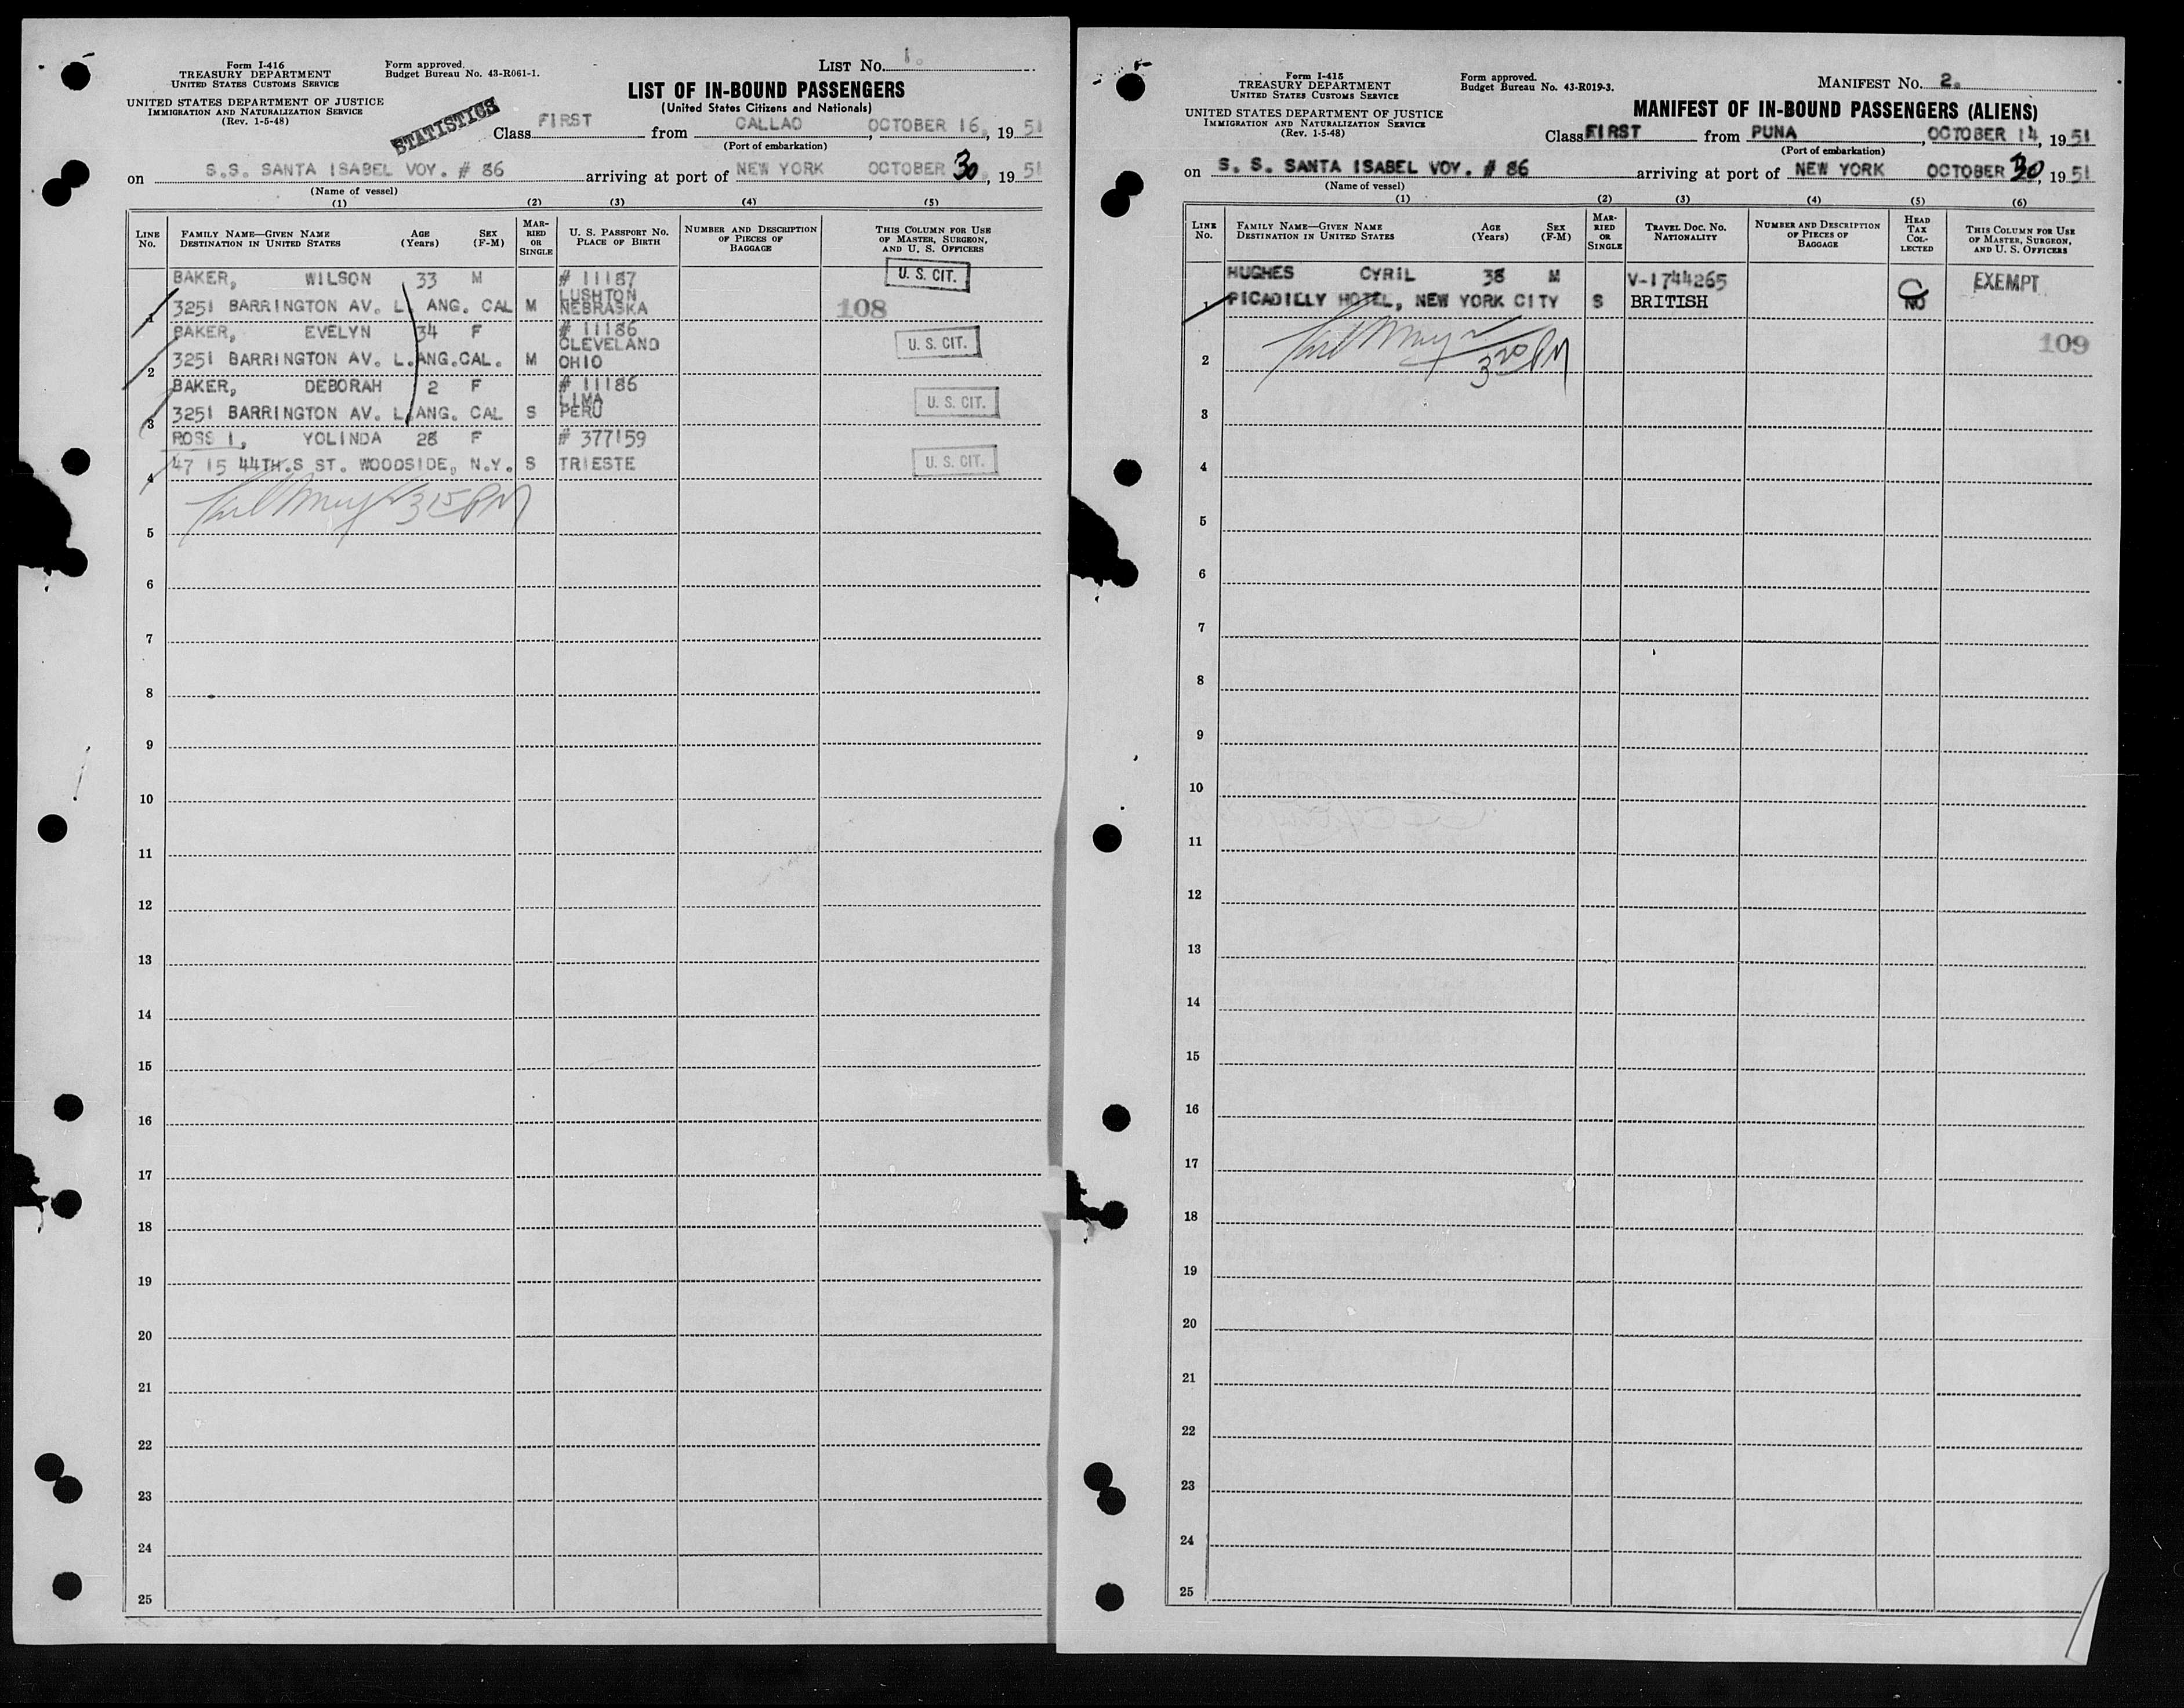 Form I-416
TREASURY DEPARTMENT
UNITED STATES CUSTOMS SERVICE
UNITED STATES DEPARTMENT OF JUSTICE
IMMIGRATION AND NATURALIZATION SERVICE
(Rev. 1-5-48)
Form approved.
Budget Bureau No. 43-R061-1.
STATISTICS
LIST No. 1.
LIST OF IN-BOUND PASSENGERS
(United States Citizens and Nationals)
Class FIRST from CALLAO, OCTOBER 16, 1951
(Port of embarkation)
on S.S. SANTA ISABEL VOY. # 86 arriving at port of NEW YORK OCTOBER 30, 1951
(Name of vessel)
(1) (2) (3) (4) (5)
LINE No. FAMILY NAME—GIVEN NAME DESTINATION IN UNITED STATES AGE (Years) SEX (F-M) MARRIED OR SINGLE U. S. PASSPORT NO. PLACE OF BIRTH NUMBER AND DESCRIPTION OF PIECES OF BAGGAGE THIS COLUMN FOR USE OF MASTER, SURGEON, AND U. S. OFFICERS
BAKER, WILSON 33 M # 11187 U. S. CIT.
LUSHTON
1 3251 BARRINGTON AV. L. ANG. CAL M NEBRASKA 108
BAKER, EVELYN 34 F # 11186 U. S. CIT.
CLEVELAND
2 3251 BARRINGTON AV. L.ANG.CAL. M OHIO
BAKER, DEBORAH 2 F # 11186 U. S. CIT.
LIMA
3 3251 BARRINGTON AV. L.ANG. CAL S PERU
ROSS I, YOLINDA 28 F # 377159
4 47 15 44TH.S ST. WOODSIDE, N.Y. S TRIESTE U. S. CIT.
315 PM
5
6
7
8
9
10
11
12
13
14
15
16
17
18
19
20
21
22
23
24
25
Form I-415
TREASURY DEPARTMENT
UNITED STATES CUSTOMS SERVICE
UNITED STATES DEPARTMENT OF JUSTICE
IMMIGRATION AND NATURALIZATION SERVICE
(Rev. 1-5-48)
Form approved.
Budget Bureau No. 43-R019-3.
MANIFEST No. 2.
MANIFEST OF IN-BOUND PASSENGERS (ALIENS)
Class FIRST from PUNA, OCTOBER 14, 1951
(Port of embarkation)
on S. S. SANTA ISABEL VOY. # 86 arriving at port of NEW YORK OCTOBER 30, 1951
(Name of vessel)
(1) (2) (3) (4) (5) (6)
LINE No. FAMILY NAME—GIVEN NAME DESTINATION IN UNITED STATES AGE (Years) SEX (F-M) MARRIED OR SINGLE TRAVEL DOC. NO. NATIONALITY NUMBER AND DESCRIPTION OF PIECES OF BAGGAGE HEAD TAX COLLECTED THIS COLUMN FOR USE OF MASTER, SURGEON, AND U. S. OFFICERS
HUGHES CYRIL 38 M V-1744265 EXEMPT
1 PICADILLY HOTEL, NEW YORK CITY S BRITISH NO
109
2 320 PM
3
4
5
6
7
8
9
10
11
12
13
14
15
16
17
18
19
20
21
22
23
24
25